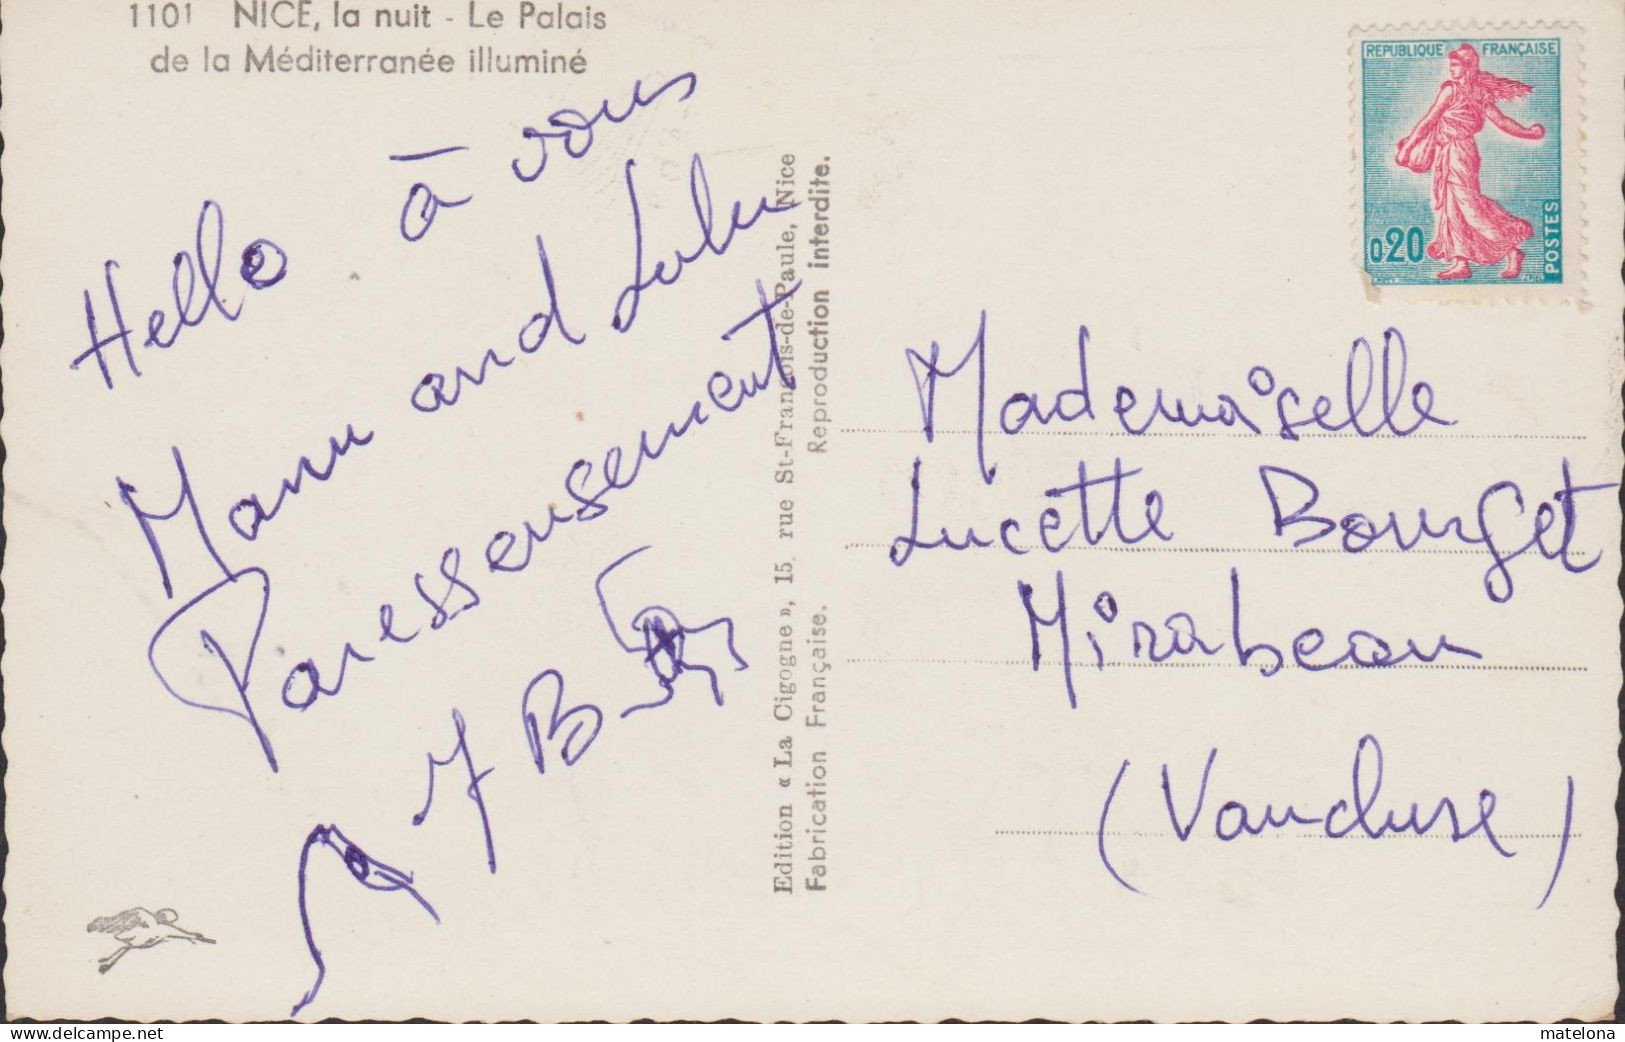 1101 NICE, la nuit - Le Palais
de la Méditerranée illuminé
Hello à vous
Manu and Lulu
Paresseusement
Edition « La Cigogne », 15, rue St-François-de-Paule, Nice
Fabrication Française. Reproduction interdite.
REPUBLIQUE FRANÇAISE
0,20
POSTES
Mademoiselle
Lucette Bourget
Mirabeau
(Vaucluse)
delcampe.net
matelona